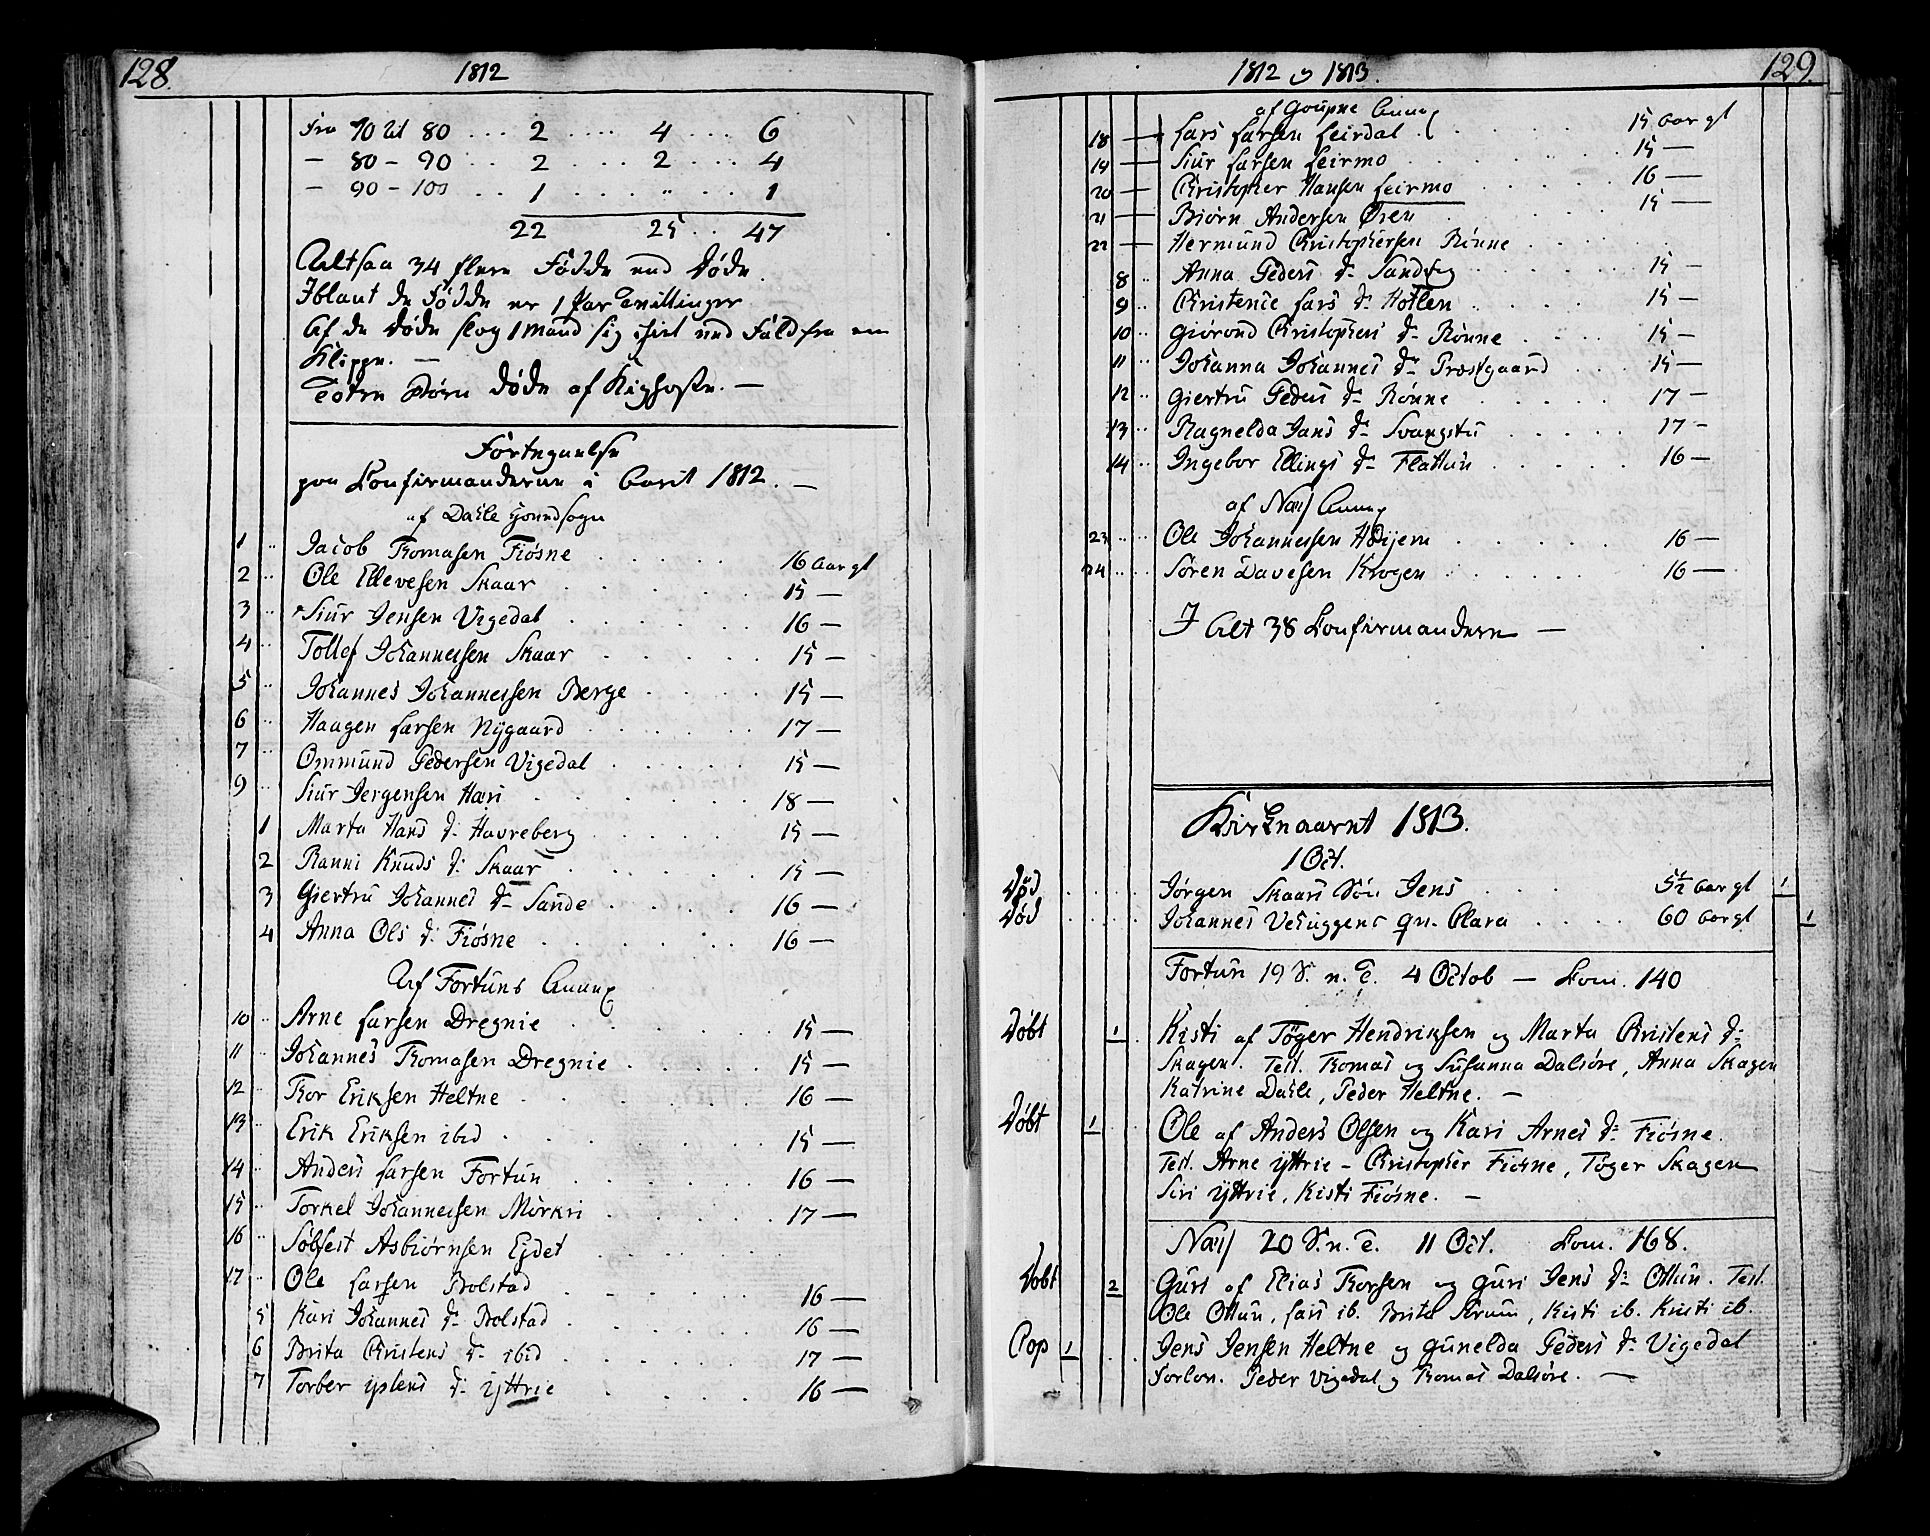 128.
1812
Fra 70 til 80 ... 2 .... 4 ... 6
— 80 – 90 ... 2 .... 2 ... 4
— 90 – 100 ... 1 .... „ .... 1
22 25 .. 47
Altsaa 34 flere Fødde end Døde.
Iblant de Fødde er 1 Par Tvillinger
Af de Døde slog 1 Mand sig ihiel ved Fald fra en
Klippe. —
Døde af Kighoste. —
Fortegnelse
paa Confirmanderne i Aaret 1812. —
af Dahle Hovedsogn
1 .. Jacob Thomasen Fiøsne ..... 16 Aar gl
2 .. Ole Ellevesen Skaar ..... 15 —
3 .. Siur Jensen Vigedal ..... 16 —
4 .. Tollef Johannessen Skaar ..... 15 —
5 .. Johannes Johannessen Berge ..... 15 —
6 .. Haagen Larsen Nÿgaard ..... 17 —
7 .. Ommund Pedersen Vigedal ..... 15 —
9 .. Siur Jergensen Hæri ..... 18 —
1 Marta Hans D: Havreberg ..... 15 —
2 Ranni Knuds D: Skaar ..... 15 —
3 Giertru Johannes D: Sande ..... 16 —
4 Anna Ols D: Fiøsne ..... 16 —
Af Fortuns Annex
10 .. Arne Larsen Dregnie ..... 15 —
11 .. Johannes Thomasen Dregnie ..... 15 —
12 .. Thor Eriksen Heltne ..... 16 —
13 .. Erik Eriksen ibid ..... 15 —
14 .. Anders Larsen Fortun ..... 16 —
15 .. Torkel Johannessen Mørkri ..... 17 —
16 .. Sølfest Asbiørnsen Ejdet .....
17 .. Ole Larsen Bolstad ..... 16 —
5 Kari Johannes D: Bolstad ..... 16 —
6 Brita Christens D: ibid ..... 17 —
7 Torber Ips D: Ÿttrie ..... 16 —
1812 og 1813.
129.
af Goupne Annex
18 — Lars Larsen Leirdal ..... 15 Aar gl
19 — Siur Larsen Leirmo ..... 15 —
20 — Christopher Hansen Leirmo ..... 16 —
21 — Biørn Andersen Øren ..... 15 —
22 — Hermund Christophersen Rønne .....
8 .. Anna Peders D: Sandvig ..... 15 —
9 .. Christense Lars D: Hollen ..... 15 —
10 .. Giørond Christophers D: Rønne ..... 15 —
11 .. Johanna Johannes D: Præstgaard ... 15 —
12 .. Giertru Peders D: Rønne ..... 17 —
13 .. Ragnelda Jans D: Svangstu ..... 17 —
14 .. Ingebor Ellings D: Flattun ..... 16 —
af Næs Annex
23 .. Ole Johannessen Høÿjem ..... 16 —
24 .. Søren Davesen Krogen ..... 16 —
I Alt 38 Confirmandere —
Kirkeaaret 1813.
1 Oct.
Død .... Jørgen Skaars Søn Jens .... 5½ Aar gl 1
Død .... Johannes Vehuggens qv. Clara .... 60 Aar gl 1
Fortun 19 S. n. T. 4 Octob — Com. 140
Døbt 1 Kisti af Tøger Hendriksen og Marta Christens D:
Skagen. Test. Thomas og Susanna Dalsøre, Anna Skagen
Katrine Dahle, Peder Heltne. —
Døbt 1 Ole af Anders Olsen og Kari Arnes D: Fiøsne.
Test. Arne Ÿttrie – Christopher Fiøsne, Tøger Skagen
Siri Ÿttrie, Kisti Fiøsne. —
Næs 20 S. n. T. 11 Oct. Com. 168.
Døbt 2 Guri af Elias Thorsen og Guri Jens D: Ottun. Test.
Ole Ottun, Lars ib. Brita, Kisti ib. Kristi ib.
Cop 1 Jens Jensen Heltne og Gunelda Peders D: Vigedal
Forlov. Peder Vigedal og Thomas Dalsøre. —